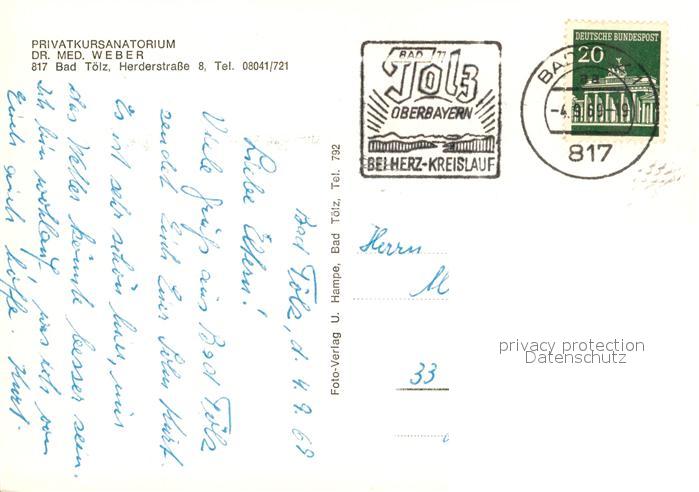 PRIVATKURSANATORIUM
DR. MED. WEBER
817 Bad Tölz, Herderstraße 8, Tel. 08041/721
Bad Tölz, d. 4.9.69
Liebe Eltern!
Viele Grüße aus Bad Tölz
sendet Euch Euer Sohn Kurt.
Es ist sehr schön hier, nur
das Wetter könnte besser sein.
Ich bin wohlauf, was ich von
Euch auch hoffe. Kurt.
Foto-Verlag U. Hampe, Bad Tölz, Tel. 792
BAD
Tölz
OBERBAYERN
BEI HERZ-KREISLAUF
DEUTSCHE BUNDESPOST
20
BAD
aa
-4.9.69-19
817
Herrn
M
33
privacy protection
Datenschutz